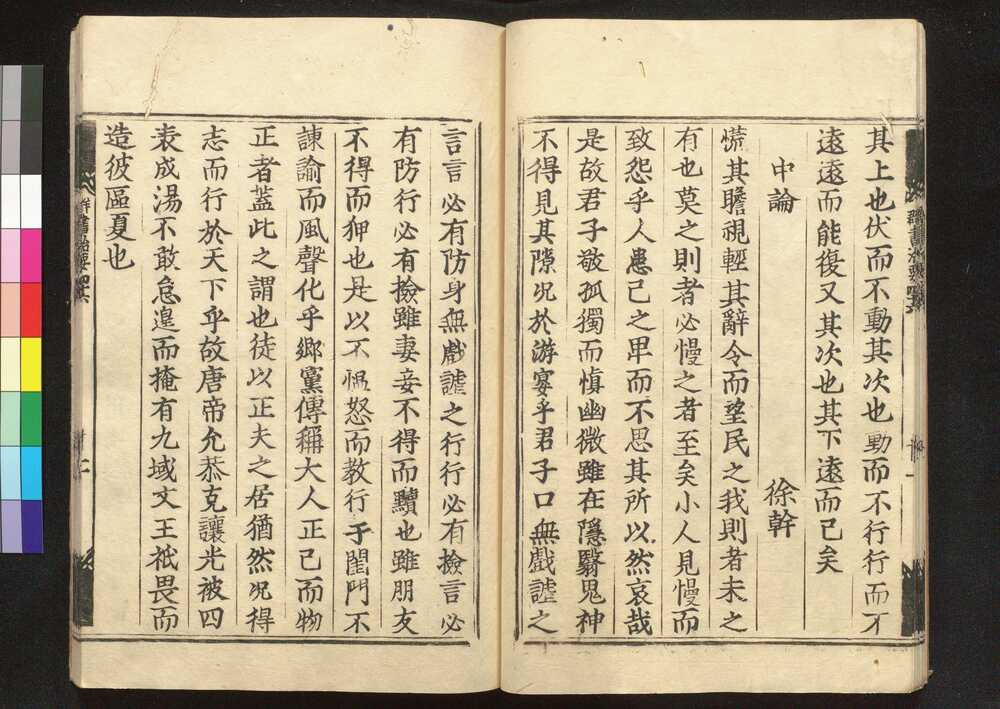 其上也伏而不動其次也動而不行行而不
遠遠而能復又其次也其下遠而已矣
中論 徐幹
慌其瞻視輕其辭令而望民之我則者未之
有也莫之則者必慢之者至矣小人見慢而
致怨乎人患己之卑而不思其所以然哀哉
是故君子敬孤獨而慎幽微雖在隱翳鬼神
不得見其隙況於游宴乎君子口無戲謔之
言言必有防身無戲謔之行行必有撿言必
有防行必有撿雖妻妾不得而黷也雖朋友
不得而狎也是以不慍怒而教行于閨門不
諫諭而風聲化乎鄉黨傳稱大人正己而物
正者蓋此之謂也徒以正夫之居猶然況得
志而行於天下乎故唐帝允恭克讓光被四
表成湯不敢怠遑而掩有九域文王祗畏而
造彼區夏也
群書治要四六
二